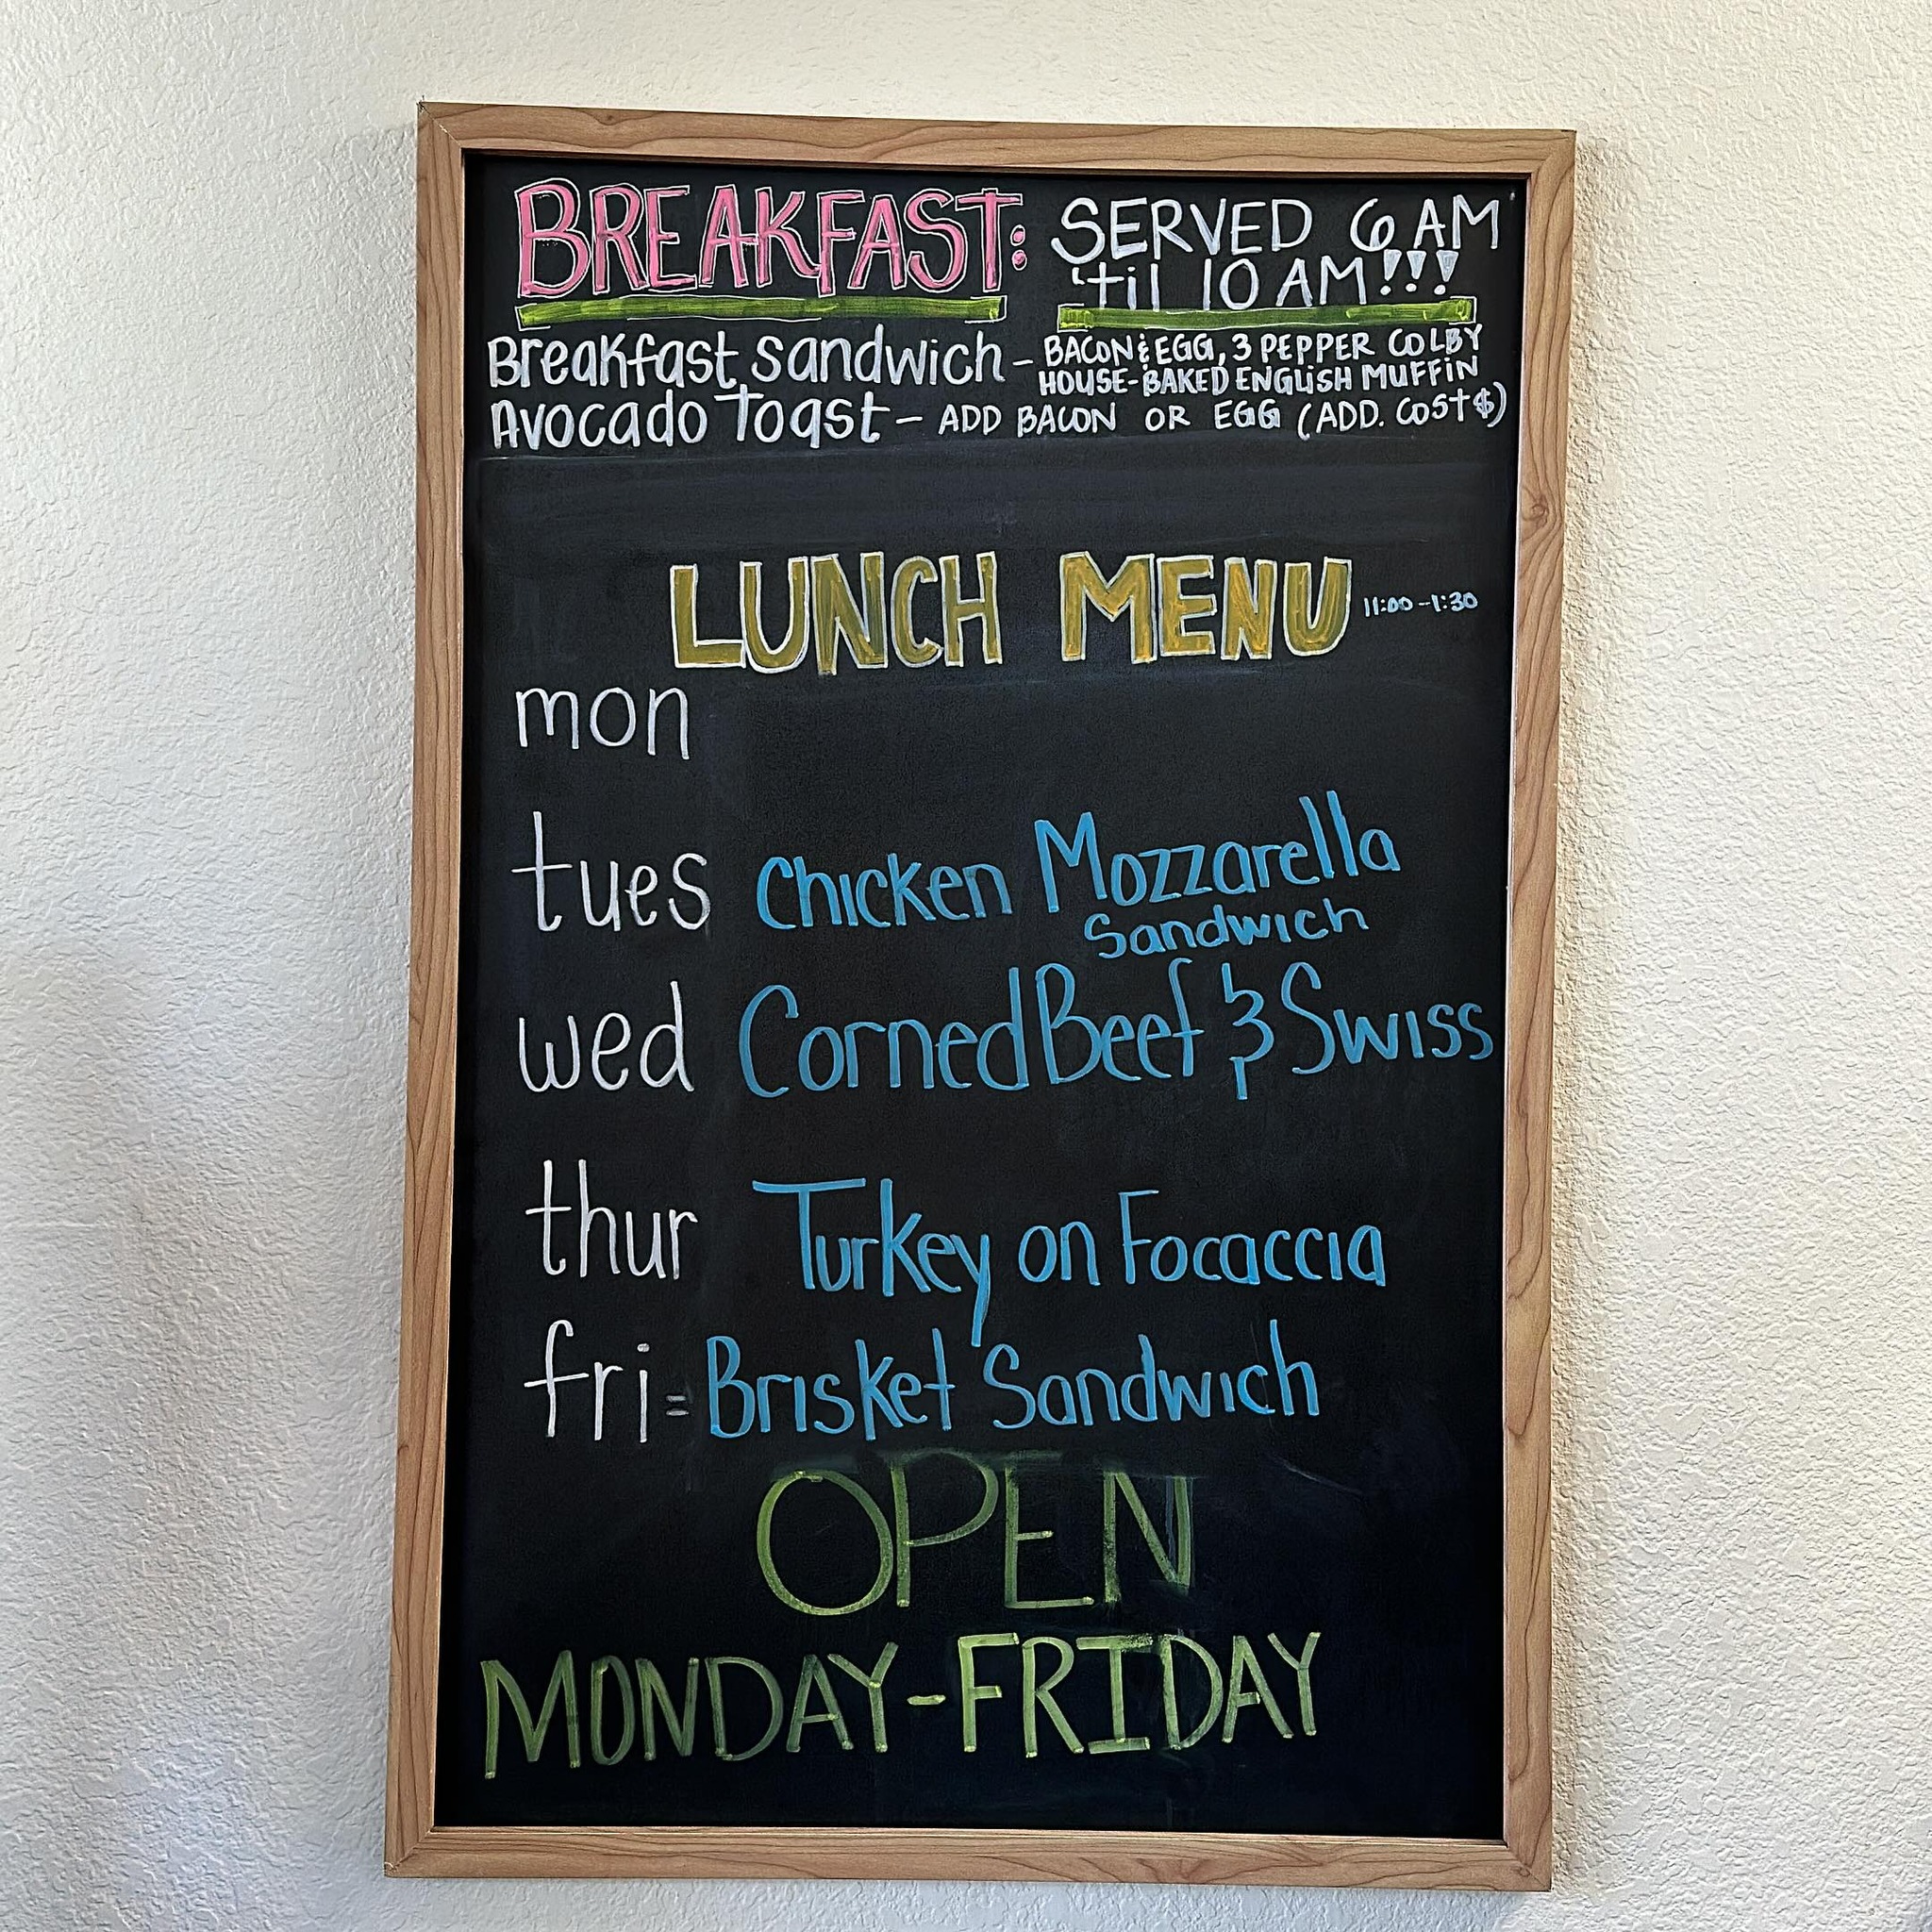 BREAKFAST: SERVED 6 AM
'til 10 AM!!!
Breakfast Sandwich - BACON & EGG, 3 PEPPER COLBY
HOUSE-BAKED ENGLISH MUFFIN
Avocado Toast - ADD BACON OR EGG (ADD. COST $)
LUNCH MENU 11:00-1:30
mon
tues Chicken Mozzarella
Sandwich
wed Corned Beef & Swiss
thur Turkey on Focaccia
fri = Brisket Sandwich
OPEN
MONDAY-FRIDAY